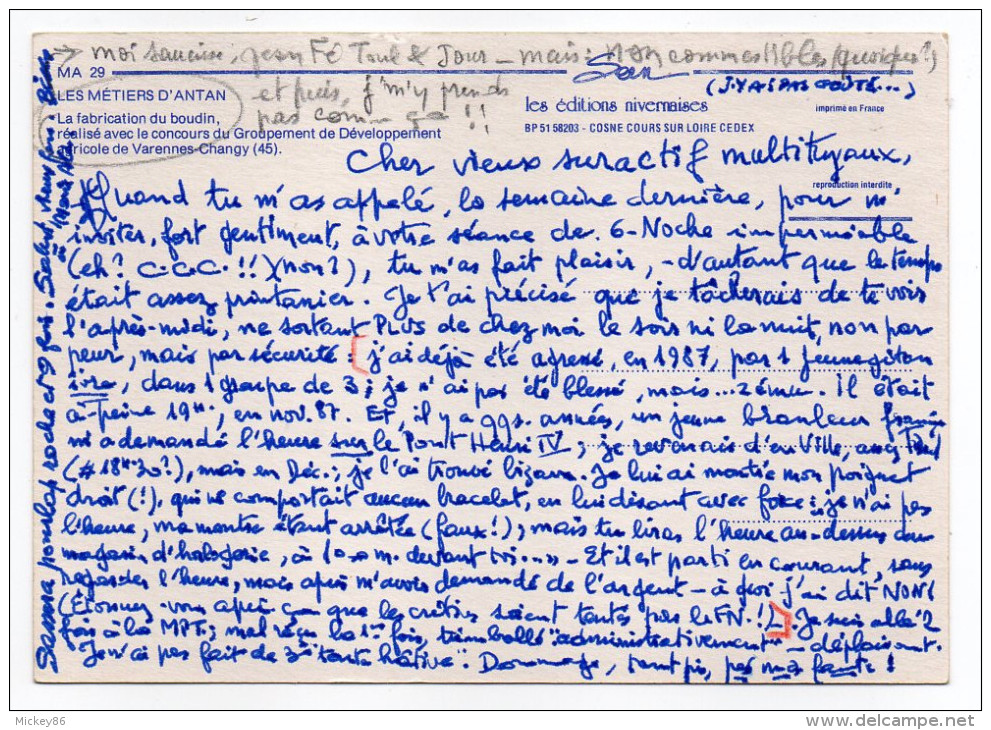 → moi saucisse, jean Fé Toul & Jour — mais : non commestibles (quoique ?)
MA 29
(J'Y AI PAS GOUTÉ...)
LES MÉTIERS D'ANTAN
et puis, j'm'y prends
pas comm' ça !!
La fabrication du boudin,
réalisé avec le concours du Groupement de Développement
Agricole de Varennes-Changy (45).
les éditions nivernaises
BP 51 58203 - COSNE COURS SUR LOIRE CEDEX
imprimé en France
reproduction interdite
Cher vieux suractif multituyaux,
Quand tu m'as appelé, la semaine dernière, pour m'
inviter, fort gentiment, à votre séance de 6-Noche imperméable
(eh? C.C.C. !! )(non?), tu m'as fait plaisir, — d'autant que le temps
était assez printanier. Je t'ai précisé que je tâcherais de te voir
l'après-midi, ne sortant PLUS de chez moi le soir ni la nuit, non par
peur, mais par sécurité : [j'ai déjà été agressé, en 1987, par 1 jeune
, dans 1 groupe de 3 ; je n'ai pas été blessé, mais... zému. Il était
à-peine 19ʰ, en nov. 87. Et, il y a qqs. années, un jeune branleur
m'a demandé l'heure sur le Pont Henri IV ; je revenais d'en Ville, assez tard
(# 18ʰ30 ?), mais en déc. ; je l'ai trouvé bizarre. Je lui ai montré mon poignet
droit (!), qui ne comportait aucun bracelet, en lui disant avec force : « je n'ai pas
l'heure, ma montre étant arrêtée (faux !) ; mais tu liras l'heure au-dessus du
magasin d'horlogerie, à 100 m. devant toi... » — Et il est parti en courant, sans
regarder l'heure, mais après m'avoir demandé de l'argent — à quoi j'ai dit NON !
(Étonnez-vous après ça que les soient tentés par le FN. !)]. Je suis allé 2
fois à la MPT. ; mal reçu la 1ère fois, trimballé "administrativement" — déplaisant.
Je n'ai pas fait de 3ème "tante hâtive". Dommage, tant pis, pas ma faute !
Mickey86
www.delcampe.net